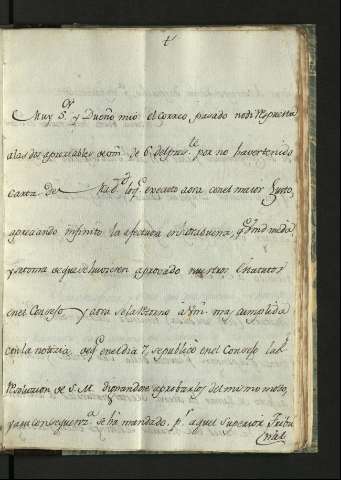 Muy S.r y Dueño mio el Correo pasado no di respuesta
a las dos apreciables de vm. de 6. del pres.te por no haver tenido
carta de Mad.d lo q.e executo aora con el maior gusto,
apreciando infinito la afectuosa enorabuena, q.e vmd me da
y retorna de que se huviesen aprovado nuestros Estatutos
en el Consejo y aora se la retorno a Vm. mas cumplida
con la noticia de q.e en el dia 7, se publico en el Consejo la R.l
Resolucion de S. M. dignandose aprobarlos del mismo modo,
y a su consequenz.a se ha mandado p.r aquel Superior Tribu
nal